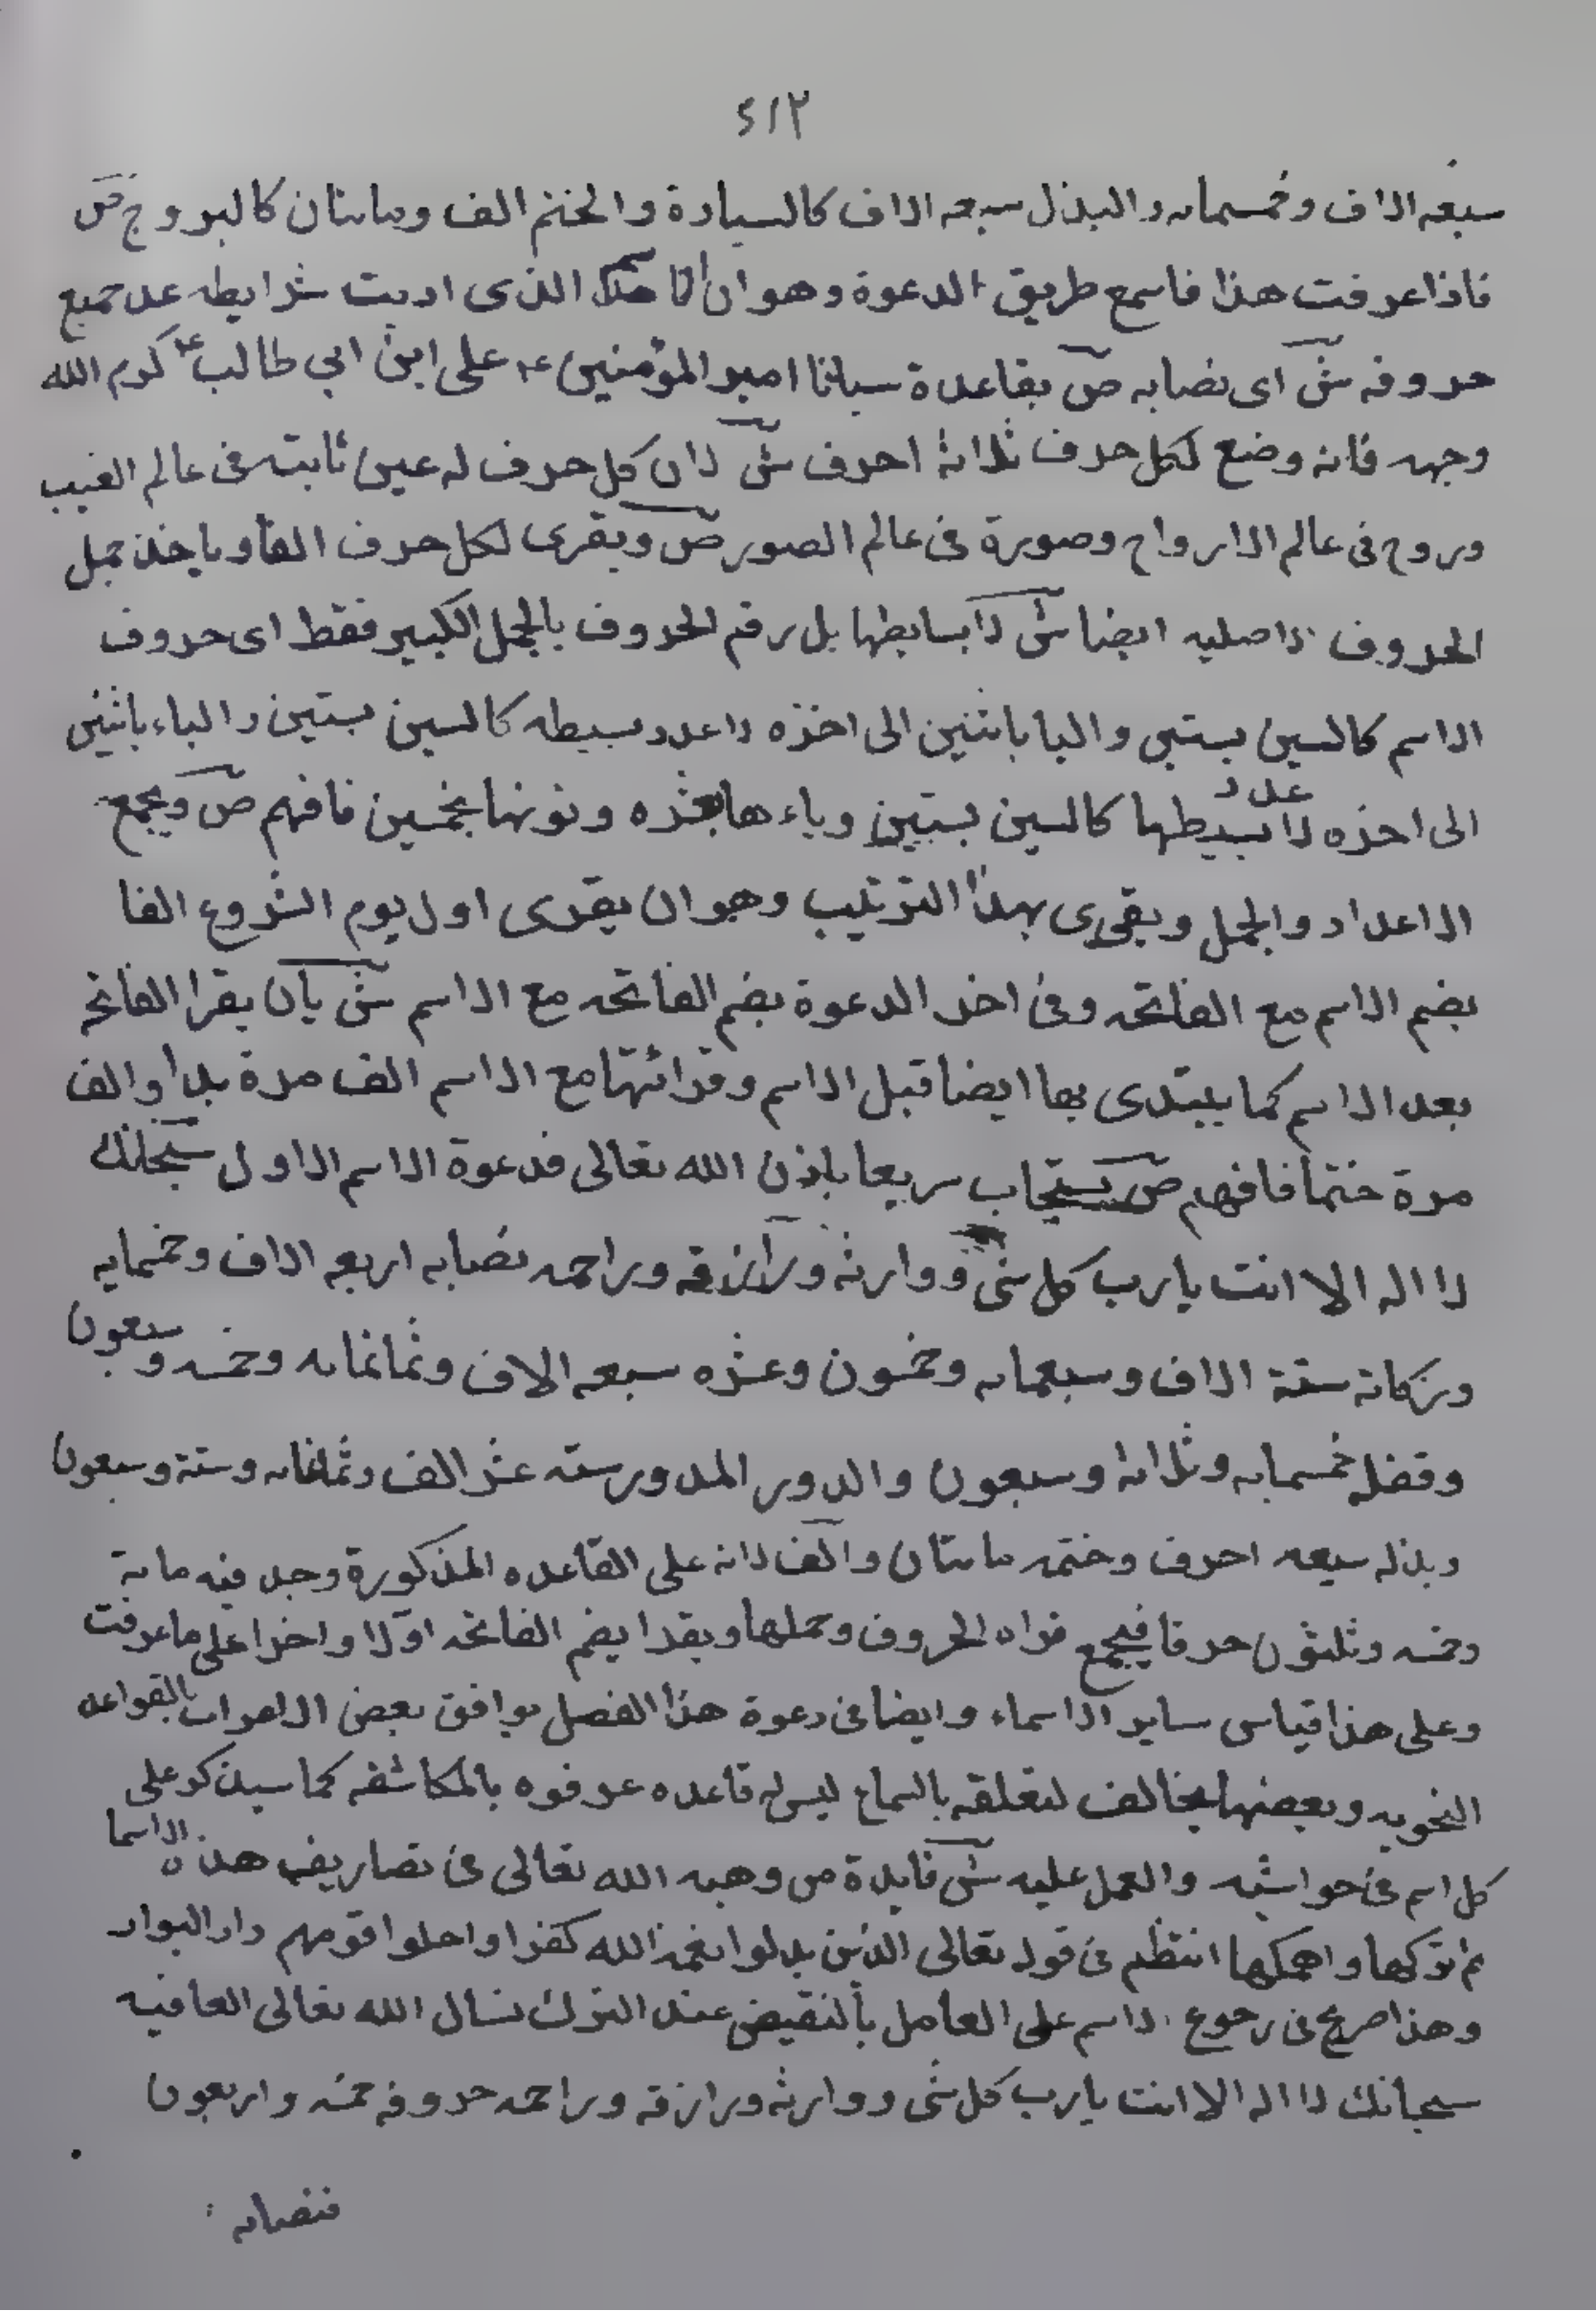 ٢١٣
سبعه الاف وخمسمايه والبذل سبعه الاف كالسيارة والختم الف ومايتان كالبروج ص
فاذا عرفت هذا فاسمع طريق الدعوة وهو ان الاسم الذى اديت شرايطه عد جميع
حروفه ش اى نصابه ص بقاعدة سيدنا امير المؤمنين على ابن ابي طالب كرم الله
وجهه فانه وضع لكل حرف ثلاثة احرف ش لان كل حرف له عين ثابته فى عالم الغيب
وروح فى عالم الارواح وصورة فى عالم الصور ص ويقرى لكل حرف الفا وياخذ جمل
الحروف الاصليه ايضا ش لا بسايطها بل رقم الحروف بالجمل الكبير فقط اى حروف
الاسم كالسين بستين والبا باثنين الى اخره لا عدد بسيطه كالسين بستين والباء باثنين
الى اخره لا عدد بسيطها كالسين بستين وياءها بعشره ونونها بخمسين فافهم ص ويجمع
الاعداد والجمل ويقرى بهذا الترتيب وهو ان يقرى اول يوم الشروع الفا
بضم الاسم مع الفاتحه وفى اخر الدعوة بضم الفاتحه مع الاسم ش بان يقرا الفاتحه
بعد الاسم كما يبتدى بها ايضا قبل الاسم وقرائتها مع الاسم الف مرة بدأ والف
مرة ختما فافهم ص يستجاب سريعا باذن الله تعالى فدعوة الاسم الاول سبحانك
لا اله الا انت يا رب كل شى ووارثه ورازقه وراحمه نصابه اربعه الاف وخمسمايه
وزكاته ستة الاف وسبعمايه وخمسون وعشره سبعه الاف وثمانمايه وخمسه وسبعون
وقفله خمسمايه وثلاثه وسبعون والدور المدور سته عشر الف وثمانمايه وستة وسبعون
وبذله سبعه احرف وختمه مايتان والف لانه على القاعده المذكورة وجد فيه ماية
وخمسه وثلثون حرفا فيجمع الحروف وجملها ويقرا بضم الفاتحه اولا واخرا على ما عرفت
وعلى هذا قياس ساير الاسماء وايضا فى دعوة هذا الفصل يوافق بعض الاعراب بالقواعد
النحويه وبعضها يخالف لتعلقه بالسماع ليس له قاعده عرفوه بالمكاشفه كما سيذكر على
كل اسم فى حواشيه والعمل عليه ش فايدة من وهبه الله تعالى فى تصاريف هذه الاسما
ثم تركها واهمكها انتظم فى قوله تعالى الذين بدلوا نعمة الله كفرا واحلوا قومهم دار البوار
وهذا صريح فى رجوع الاسم على العامل بالنقيض عند الترك نسال الله تعالى العافيه
سبحانك لا اله الا انت يا رب كل شى ووارثه ورازقه وراحمه حروفه خمسه واربعون
فنصابه